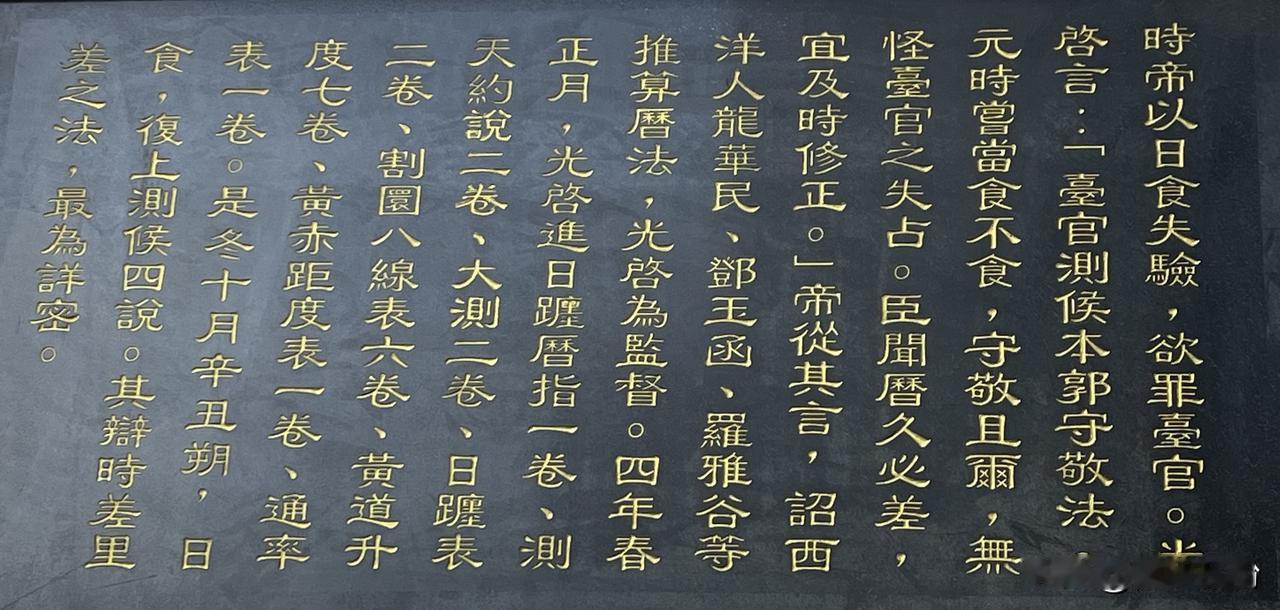 時帝以日食失驗，欲罪臺官。光
啓言：「臺官測候本郭守敬法，
元時嘗當食不食，守敬且爾，無
怪臺官之失占。臣聞曆久必差，
宜及時修正。」帝從其言，詔西
洋人龍華民、鄧玉函、羅雅谷等
推算曆法，光啓為監督。四年春
正月，光啓進日躔曆指一卷、測
天約說二卷、大測二卷、日躔表
二卷、割圜八線表六卷、黃道升
度七卷、黃赤距度表一卷、通率
表一卷。是冬十月辛丑朔，日
食，復上測候四說。其辯時差里
差之法，最為詳密。